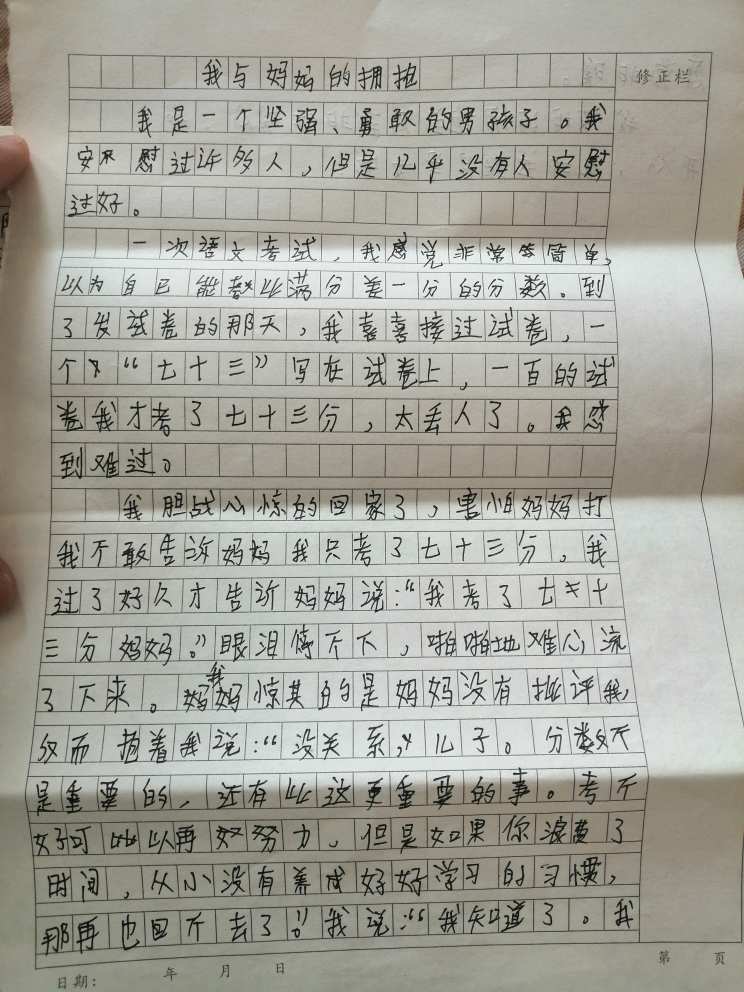 我与妈妈的拥抱
修正栏
我是一个坚强、勇敢的男孩子。我
安慰过许多人，但是几乎没有人安慰
过好。
一次语文考试，我感觉非常简单，
以为自己能考比满分差一分的分数。到
了发试卷的那天，我喜喜接过试卷，一
个“七十三”写在试卷上，一百的试
卷我才考了七十三分，太丢人了。我感
到难过。
我胆战心惊的回家了，害怕妈妈打
我不敢告诉妈妈我只考了七十三分，我
过了好久才告诉妈妈说：“我考了七十
三分妈妈。”眼泪停不下，啪啪地难心流
了下来。我妈妈惊其的是妈妈没有批评我，
反而抱着我说：“没关系，儿子。分数不
是重要的，还有比这更重要的事。考不
好可以再努力，但是如果你浪费了
时间，从小没有养成好好学习的习惯，
那再也回不去了。”我说：“我知道了。我
日期： 年 月 日
第 页